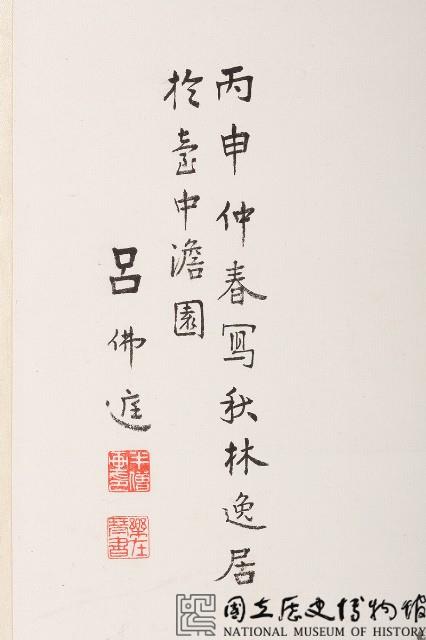 丙申仲春寫秋林逸居
於臺中澹園
呂佛庭
半僧
畫室
樂在
琴書
國立歷史博物館
NATIONAL MUSEUM OF HISTORY